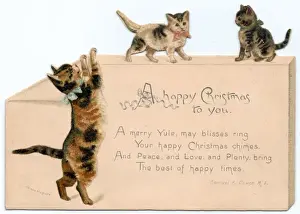 A happy Christmas
to you.
A merry Yule, may blisses ring
Your happy Christmas chimes,
And Peace, and Love, and Plenty, bring
The best of happy times.